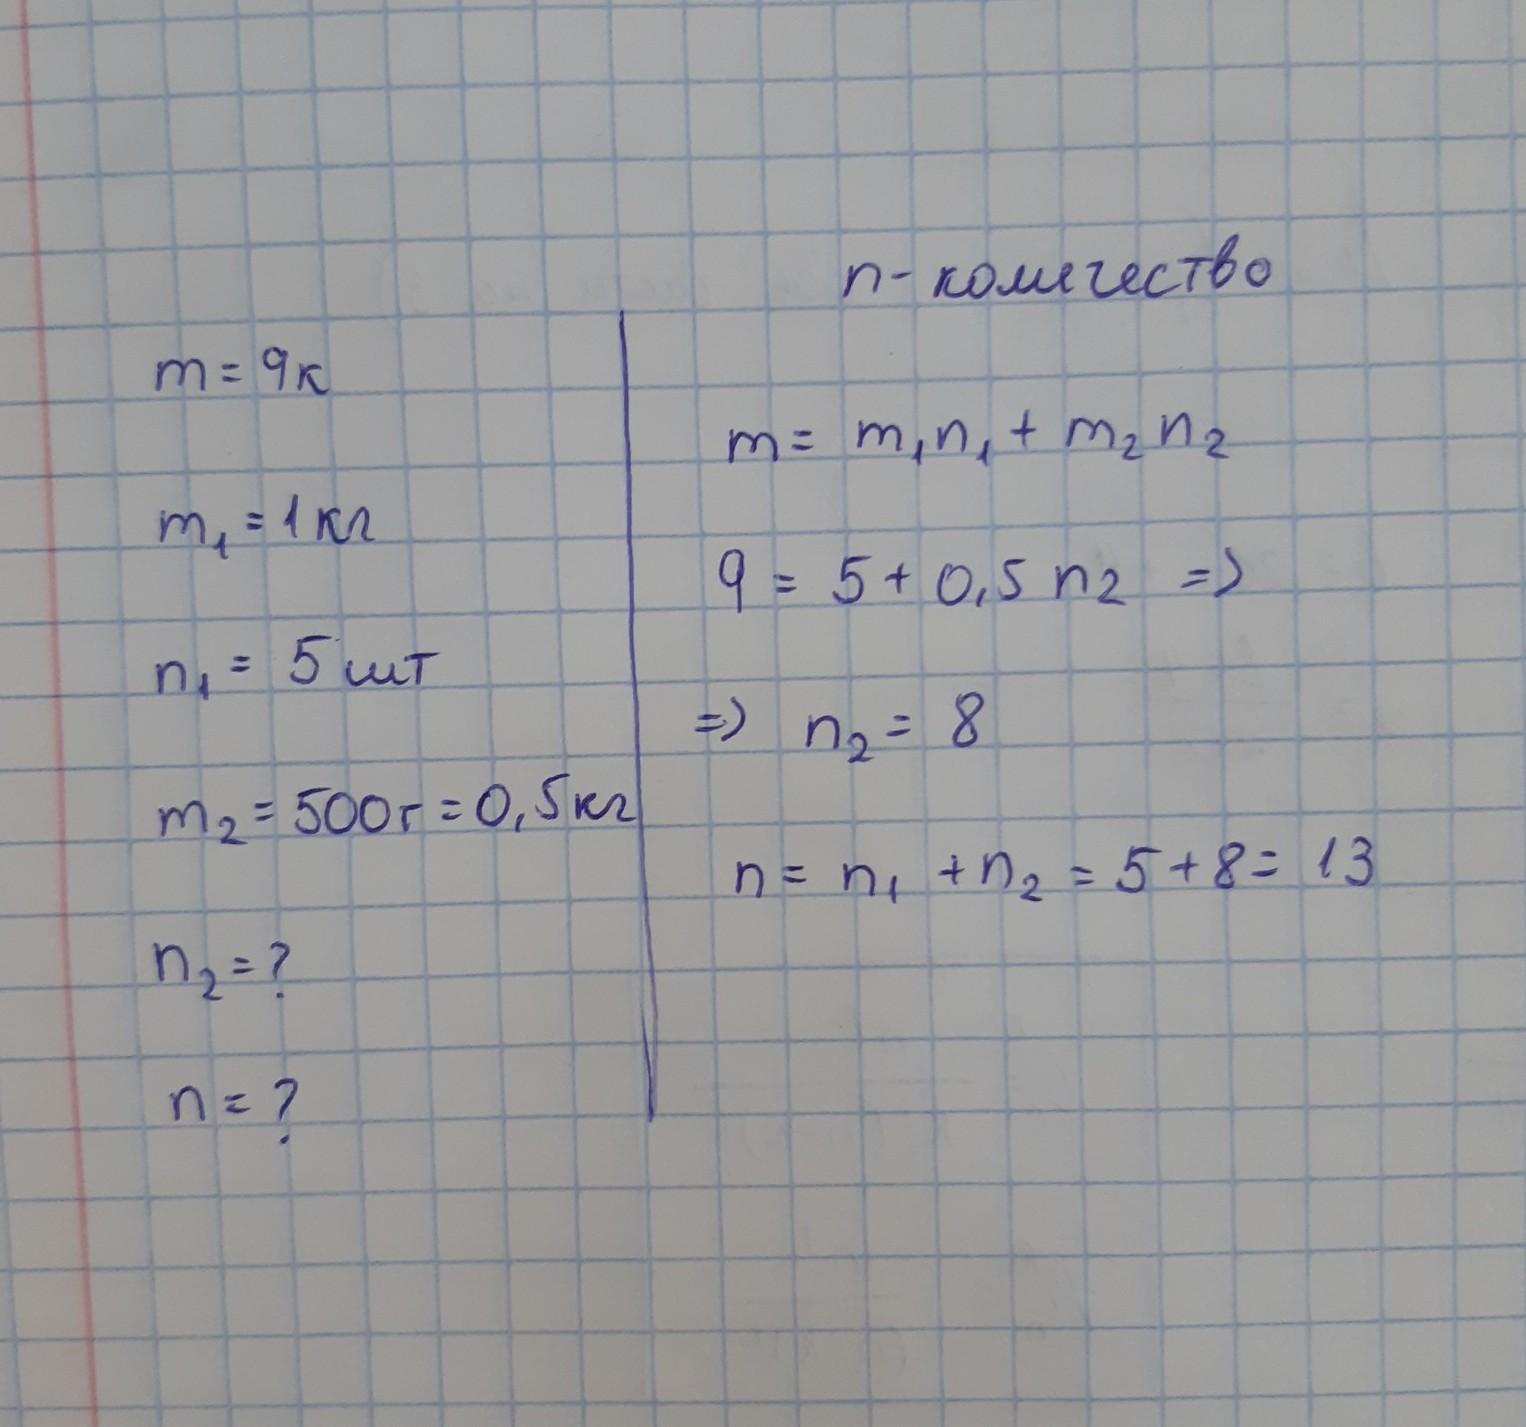 n - количество
m = 9к
m₁ = 1кг
n₁ = 5 шт
m₂ = 500г = 0,5кг
n₂ = ?
n = ?
m = m₁n₁ + m₂n₂
9 = 5 + 0,5 n₂ =>
=> n₂ = 8
n = n₁ + n₂ = 5 + 8 = 13